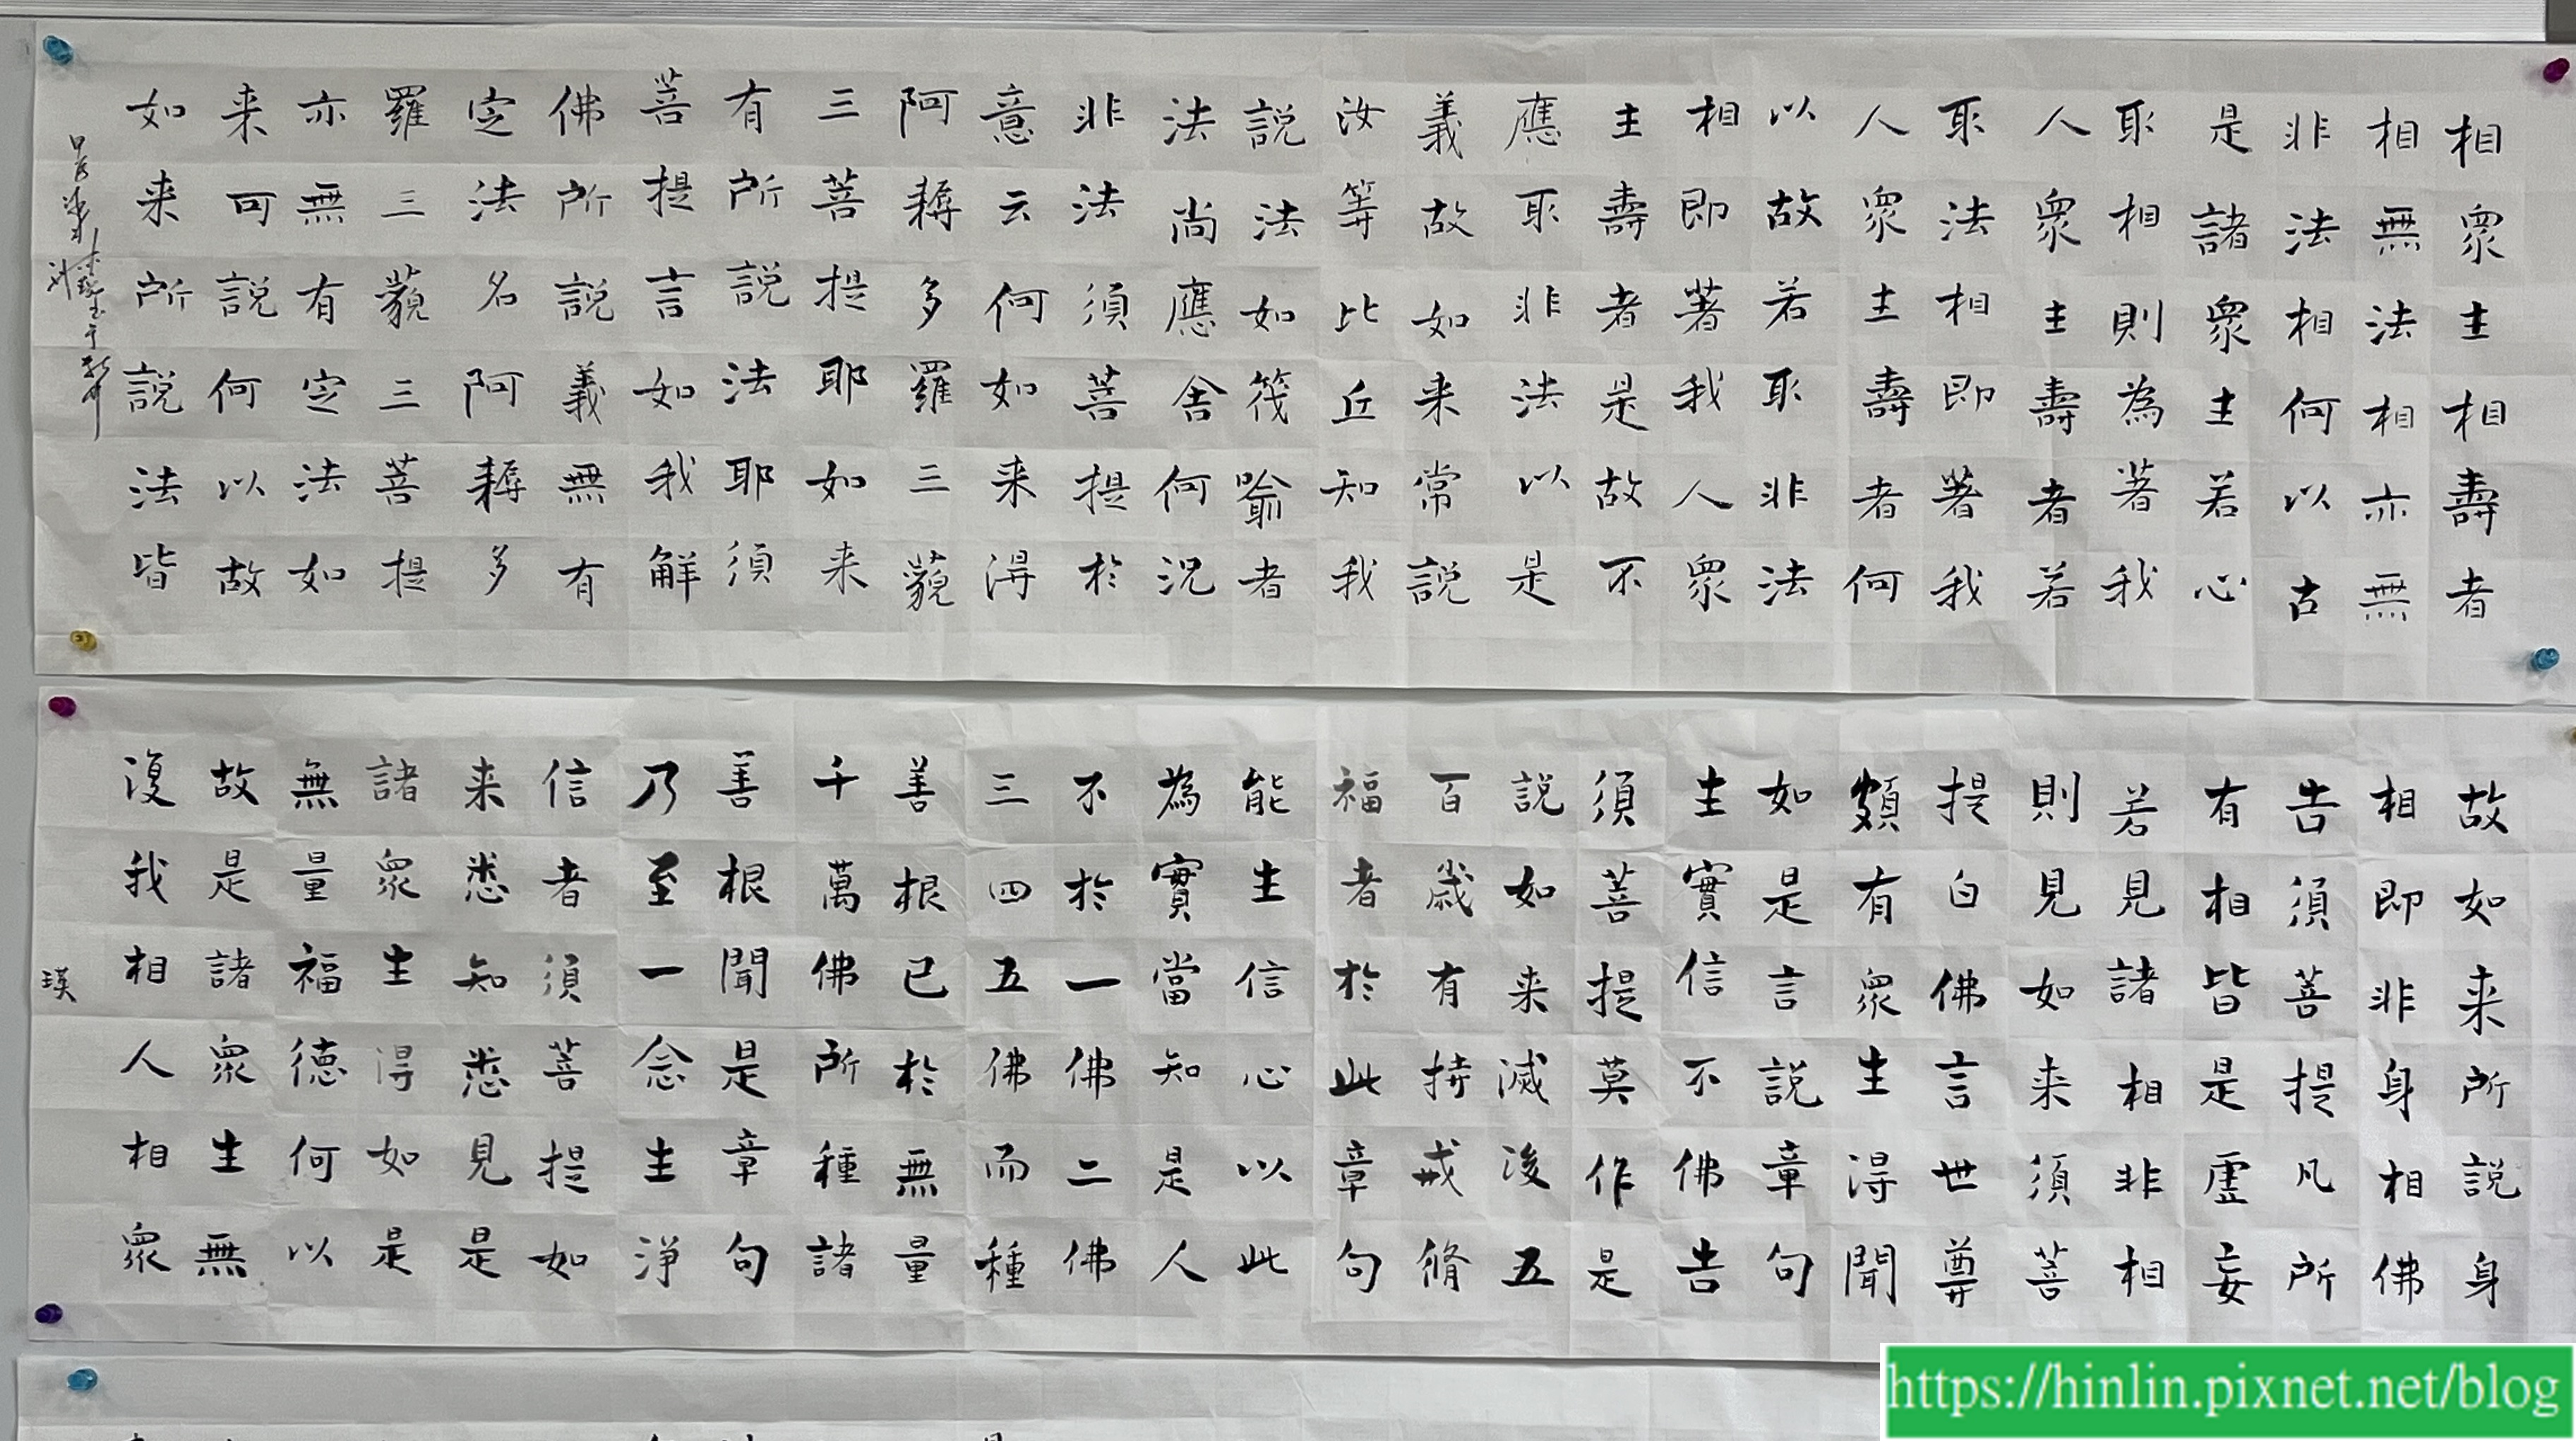 相眾生相壽者
相無法相亦無
非法相何以古
是諸眾生若心
取相則為著我
人眾生壽者若
取法相即著我
人眾生壽者何
以故若取非法
相即著我人眾
生壽者是故不
應取非法以是
義故如来常說
汝等比丘知我
說法如筏喻者
法尚應舍何況
非法須菩提於
意云何如来得
阿耨多羅三藐
三菩提耶如来
有所說法耶須
菩提言如我解
佛所說義無有
定法名阿耨多
羅三藐三菩提
亦無有定法如
来可說何以故
如来所說法皆
故如来所說身
相即非身相佛
告須菩提凡所
有相皆是虛妄
若見諸相非相
則見如来須菩
提白佛言世尊
頗有眾生得聞
如是言說章句
生實信不佛告
須菩提莫作是
說如来滅後五
百歲有持戒脩
福者於此章句
能生信心以此
為實當知是人
不於一佛二佛
三四五佛而種
善根已於無量
千萬佛所種諸
善根聞是章句
乃至一念生淨
信者須菩提如
来悉知悉見是
諸眾生得如是
無量福德何以
故是諸眾生無
復我相人相眾
瑛
https://hinlin.pixnet.net/blog